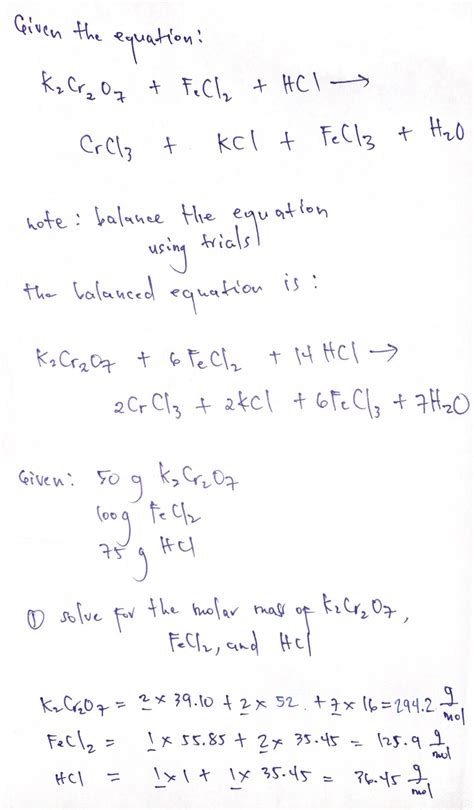 Given the equation:
K₂Cr₂O₇ + FeCl₂ + HCl →
CrCl₃ + KCl + FeCl₃ + H₂O
note: balance the equation
using trials
the balanced equation is:
K₂Cr₂O₇ + 6FeCl₂ + 14HCl →
2CrCl₃ + 2KCl + 6FeCl₃ + 7H₂O
Given: 50 g K₂Cr₂O₇
100g FeCl₂
75 g HCl
① solve for the molar mass of K₂Cr₂O₇,
FeCl₂, and HCl
K₂Cr₂O₇ = 2 × 39.10 + 2 × 52. + 7 × 16 = 294.2 g/mol
FeCl₂ = 1 × 55.85 + 2 × 35.45 = 125.9 g/mol
HCl = 1 × 1 + 1 × 35.45 = 36.45 g/mol